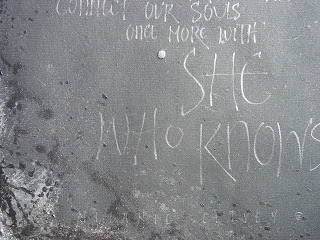 CONNECT OUR SOULS
ONCE MORE WITH
SHE
WHO KNOWS